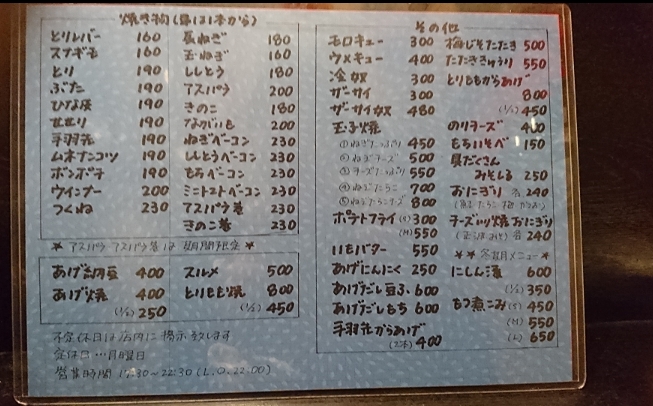 焼き物(串は1本から)
とりレバー 160
スナギモ 160
とり 190
ぶた 190
ひな皮 190
せせり 190
手羽先 190
ムネナンコツ 190
ボンボチ 190
ウインナー 200
つくね 230
長ねぎ 180
玉ねぎ 160
ししとう 180
アスパラ 200
きのこ 180
ながいも 200
ねぎベーコン 230
ししとうベーコン 230
もちベーコン 230
ミニトマトベーコン 230
アスパラ巻 230
きのこ巻 230
★ アスパラ・アスパラ巻は 期間限定 ★
あげ納豆 400
あげ焼 400
(1/2) 250
スルメ 500
とりもも焼 800
(1/2) 450
不定休日は店内に掲示致します
定休日…月曜日
営業時間 17:30~22:30 (L.O.22:00)
その他
モロキュー 300
ウメキュー 400
冷奴 300
ザーサイ 300
ザーサイ奴 480
玉子焼
①ねぎたっぷり 450
②ねぎチーズ 500
③チーズたっぷり 550
④ねぎたらこ 700
⑤ねぎたらこチーズ 800
ポテトフライ (S) 300
(M) 550
いもバター 550
あげにんにく 250
あげだし豆ふ 600
あげだしもち 600
手羽先からあげ
(2本) 400
梅じそたたき 500
たたききゅうり 550
とりももからあげ
800
(1/2) 450
のりチーズ 400
もちいそべ 150
具だくさん
みそしる 250
おにぎり 各240
チーズ入り焼おにぎり
各240
★★ 冬期メニュー ★
にしん漬 600
(1/2) 350
もつ煮こみ (S) 450
(M) 550
(L) 650